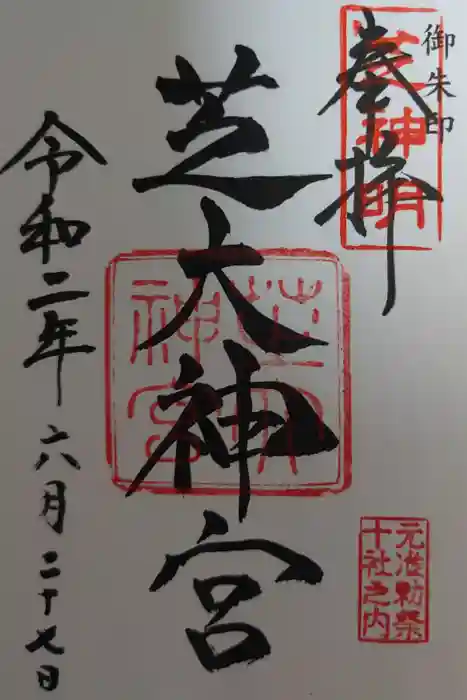 御朱印
奉拝
芝神明
芝大神宮
芝大神宮
令和二年六月二十七日
元准勅祭
十社之内